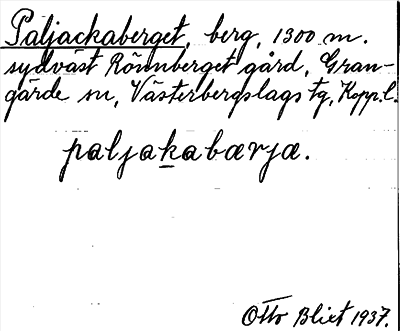 Paljackaberget, berg, 1300 m.
sydväst Rönnberget gård, Gran-
gärde sn, Västerbergslags tg, Kopp.l.
paljakabærjæ.
Otto Blixt 1937.